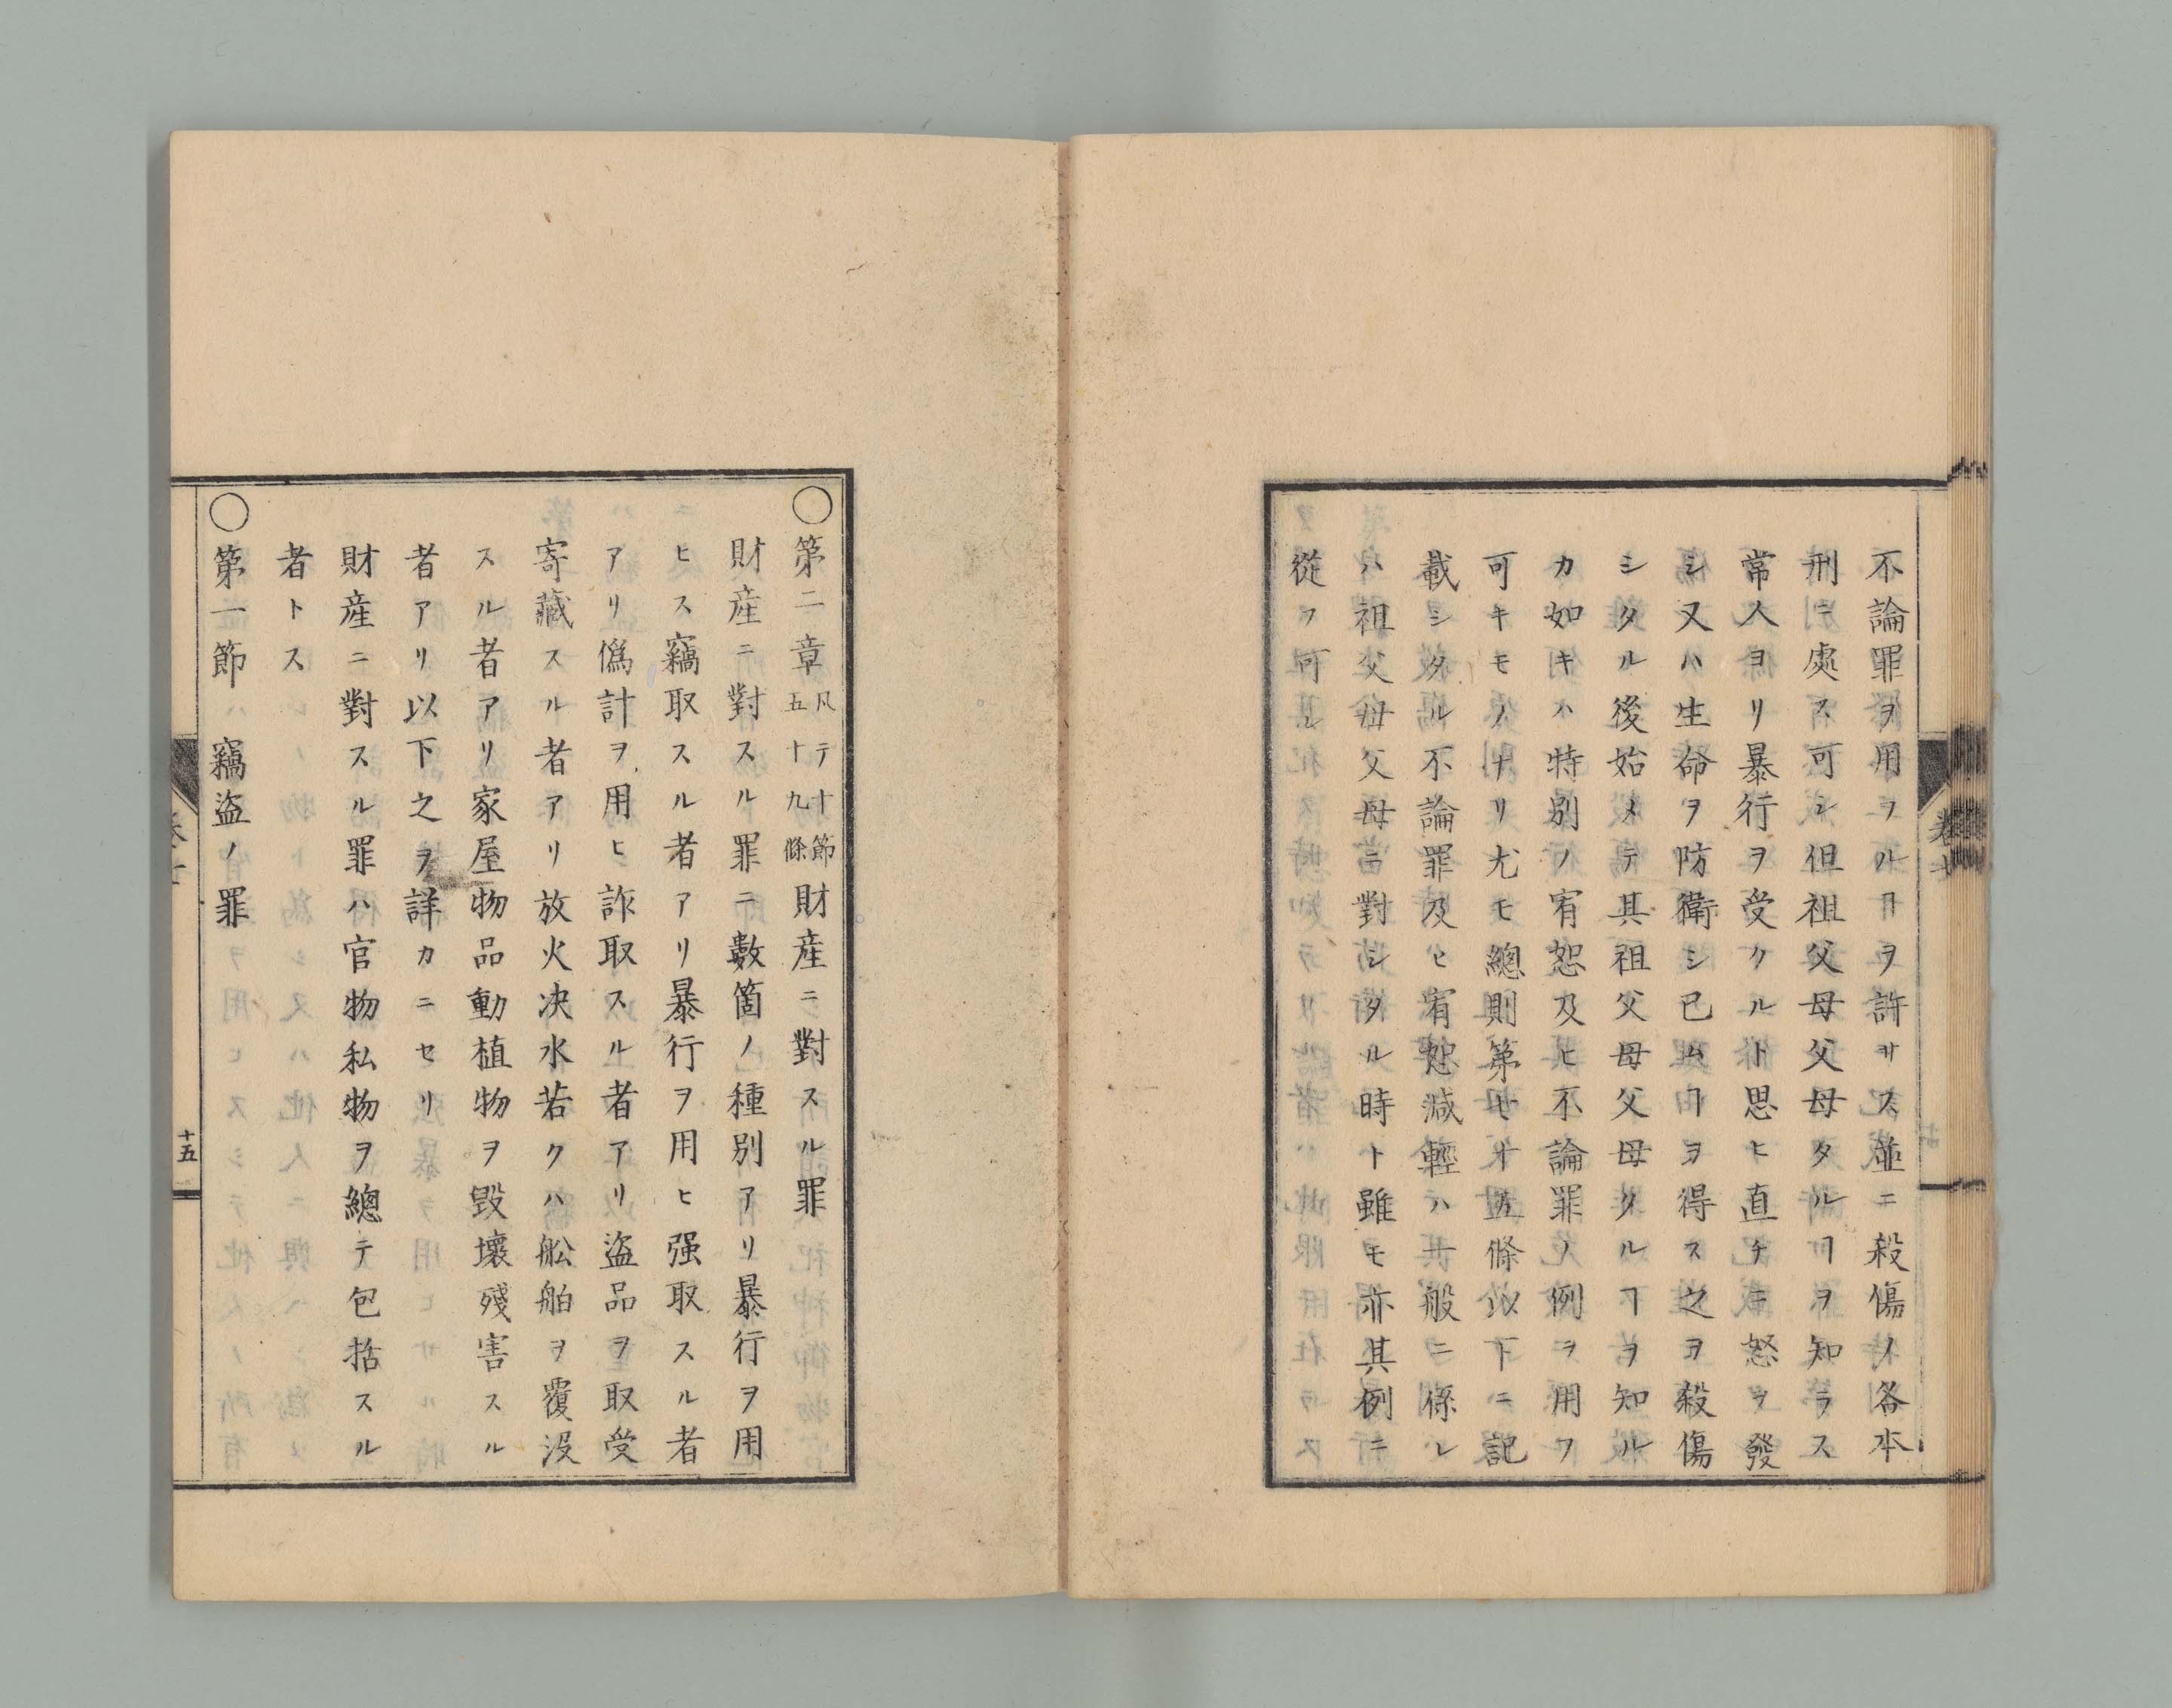 不論罪ヲ用フルヿヲ許サス並ニ殺傷ノ各本
刑ニ處ス可シ但祖父母父母タルヿヲ知ラス
常人ヨリ暴行ヲ受クルト思ヒ直チニ怒ヲ發
シ又ハ生命ヲ防衛シ已ムヿヲ得ス之ヲ殺傷
シタル後始メテ其祖父母父母タルヿヲ知ル
カ如キハ特別ノ宥恕及ヒ不論罪ノ例ヲ用フ
可キモノナリ尤モ總則第七十五條以下ニ記
載シタル不論罪及ヒ宥恕減輕ハ其一般ニ係レ
ハ祖父母父母ニ對シタル時ト雖モ亦其例ニ
從フ可シ
卷七
○第二章
凡テ十節
五十九條
財産ニ對スル罪
財産ニ對スル罪ニ數箇ノ種別アリ暴行ヲ用
ヒス竊取スル者アリ暴行ヲ用ヒ强取スル者
アリ僞計ヲ用ヒ詐取スル者アリ盗品ヲ取受
寄藏スル者アリ放火决水若クハ舩舶ヲ覆沒
スル者アリ家屋物品動植物ヲ毀壞殘害スル
者アリ以下之ヲ詳カニセリ
財産ニ對スル罪ハ官物私物ヲ總テ包括スル
者トス
○第一節 竊盗ノ罪
十五